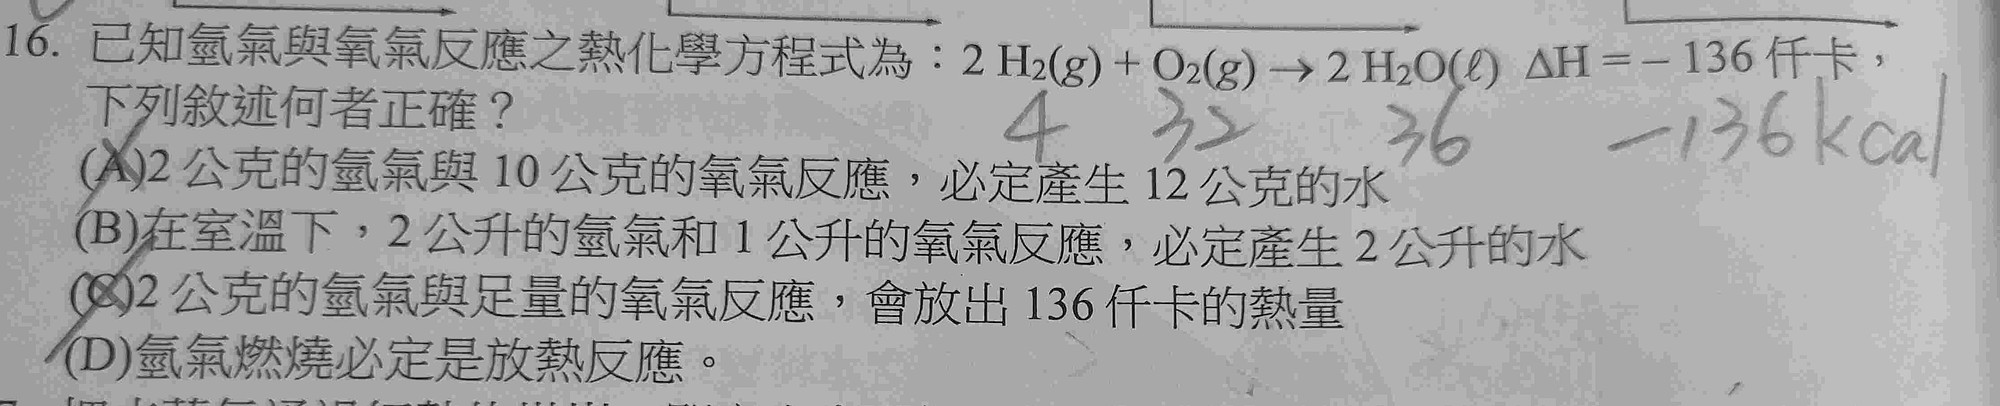 16. 已知氫氣與氧氣反應之熱化學方程式為：2 H₂(g) + O₂(g) → 2 H₂O(ℓ) ΔH = – 136 仟卡，
下列敘述何者正確？
4 32 36 –136 kcal
(A)2 公克的氫氣與 10 公克的氧氣反應，必定產生 12 公克的水
(B)在室溫下，2 公升的氫氣和 1 公升的氧氣反應，必定產生 2 公升的水
(C)2 公克的氫氣與足量的氧氣反應，會放出 136 仟卡的熱量
(D)氫氣燃燒必定是放熱反應。